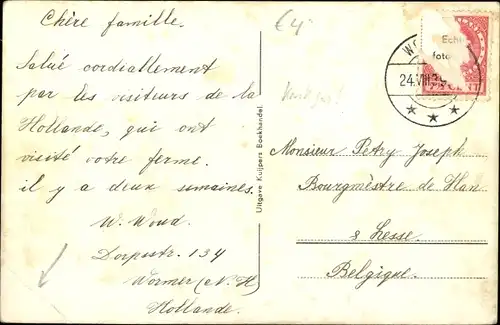 Chère famille.
Salué cordiallement
par les visiteurs de la
Hollande, qui ont
visité votre ferme.
il y a deux semaines.
W. Woud.
Dorpsstr. 134
Wormer (N. H)
Hollande.
Uitgave Kuijpers Boekhandel.
€4-
Echte
foto
WO
24.VIII.35
CENT
* * *
Monsieur Petry Joseph
Bourgmèstre de Han
s Lesse.
Belgique.